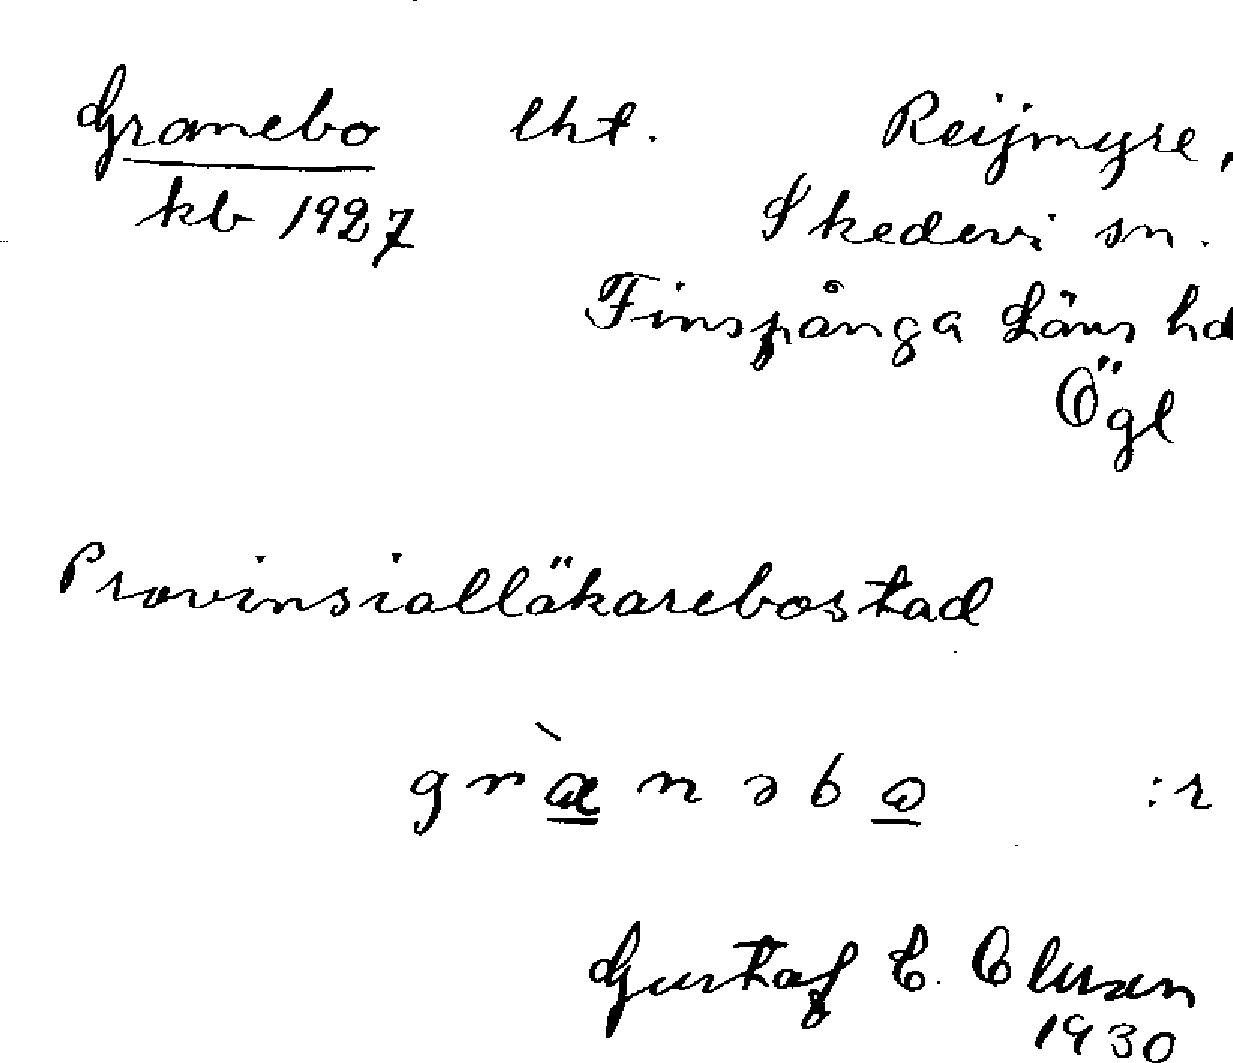 Granebo lht. Reijmyre,
kb 1927 Skedevi sn.
Finspånga Läns hd
Ögl
Provinsialläkarebostad
:r
Gustaf E.
1930